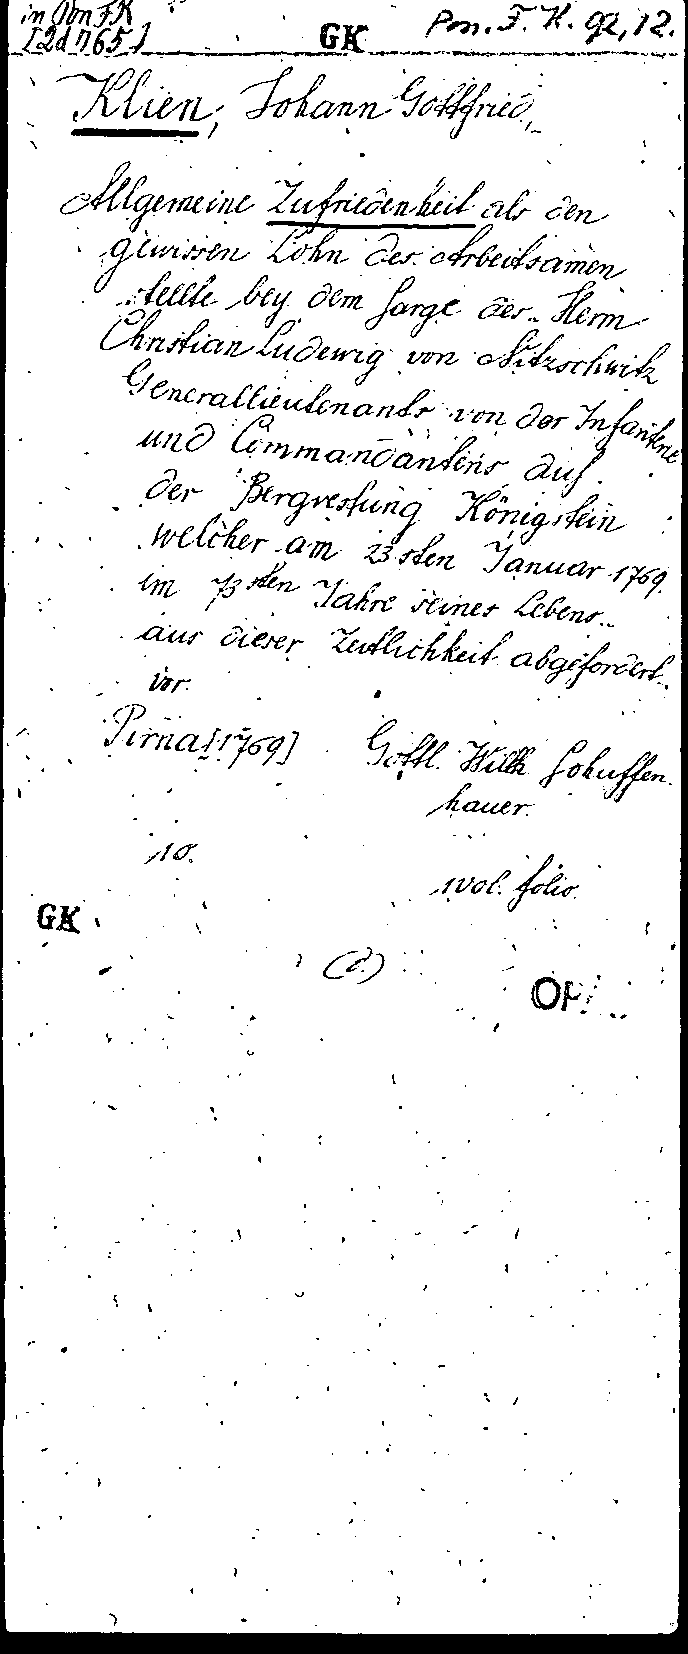 in Pon FK
[2d 765]
GK
Pon. F. K. 92, 12.
Klien, Johann Gottfried,
Allgemeine Zufriedenheit als den
gewissen Lohn des Arbeitsamen
stellte bey dem Sarge des Herrn
Christian Ludewig von Nitzschwitz
Generallieutenants von der Infanterie
und Commandantens auf
der Bergvestung Königstein
welcher am 23sten Januar 1769.
im 73sten Jahre seines Lebens
aus dieser Zeitlichkeit abgefordert
vor.
Pirna [1769] Gottl. Wilh
hauer.
10.
1 vol. folio.
GK
(d)